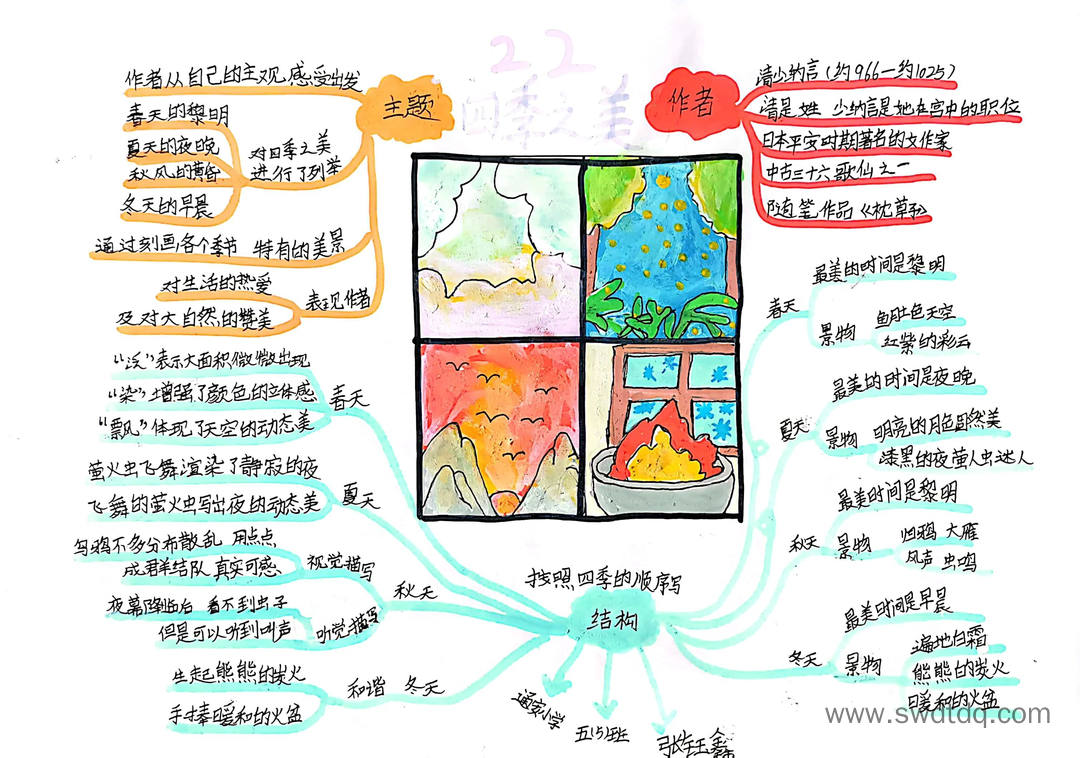 22
四季之美
主题
作者从自己的主观感受出发
春天的黎明
夏天的夜晚
秋风的黄昏
冬天的早晨
对四季之美
进行了列举
通过刻画各个季节 特有的美景
对生活的热爱
及对大自然的赞美
表现作者
作者
清少纳言(约966一约1025)
清是姓 少纳言是她在宫中的职位
日本平安时期著名的女作家
中古三十六歌仙之一
随笔作品《枕草子》
按照四季的顺序写
结构
春天
"泛"表示大面积微微出现
"染"增强了颜色的立体感
"飘"体现了天空的动态美
夏天
萤火虫飞舞渲染了静寂的夜
飞舞的萤火虫写出夜的动态美
秋天
视觉描写
乌鸦不多分布散乱 用点点
成群结队 真实可感
听觉描写
夜幕降临后 看不到虫子
但是可以听到叫声
冬天
和谐
生起熊熊的炭火
手捧暖和的火盆
春天
最美的时间是黎明
景物
鱼肚色天空
红紫的彩云
夏天
最美的时间是夜晚
景物
明亮的月色固然美
漆黑的夜萤人虫迷人
秋天
最美时间是黎明
景物
归鸦 大雁
风声 虫鸣
冬天
最美时间是早晨
景物
遍地白霜
熊熊的炭火
暖和的火盆
通安小学
五(5)班
www.swdtdq.com